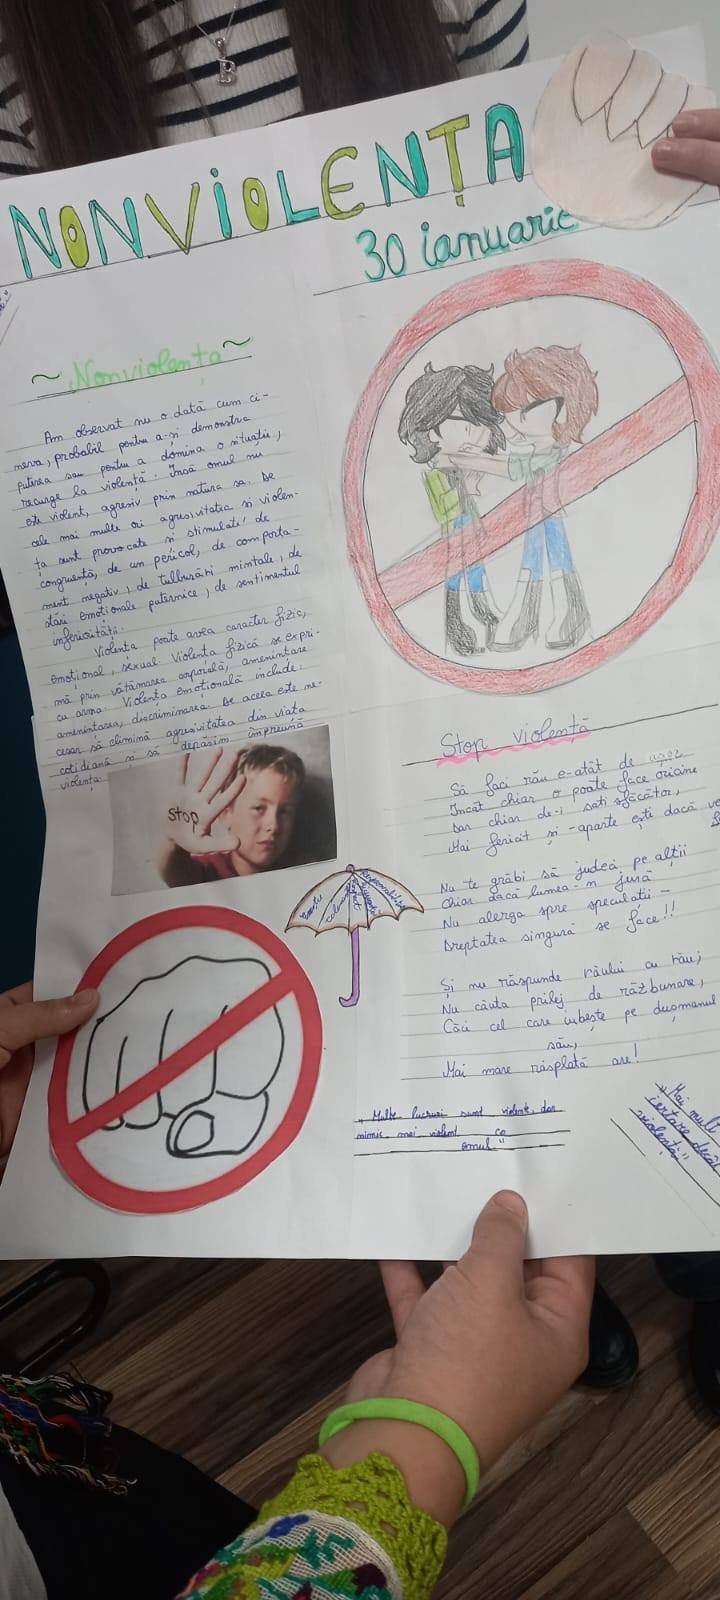 NONVIOLENȚA
30 ianuarie
~ Nonviolența ~
Am observat nu o dată cum ci-
neva, probabil pentru a-și demonstra
puterea sau pentru a domina o situație,
recurge la violență. Însă omul nu
este violent, agresiv prin natura sa. De
cele mai multe ori agresivitatea și violen-
ța sunt provocate și stimulate de
congruență, de un pericol, de comporta-
ment negativ, de tulburări mintale, de
stări emoționale puternice, de sentimentul
inferiorității.
Violența poate avea caracter fizic,
emoțional, sexual. Violența fizică se expri-
mă prin vătămarea corporală, amenințare
cu arma. Violența emoțională include:
amenințarea, discriminarea. De aceea este ne-
cesar să elimină agresivitatea din viața
cotidiană și să depășim împreună
violența.
Stop
Stop violență
Să faci rău e-atât de ușor
Încât chiar o poate face oricine
Dar chiar de-i
Mai fericit și -aparte ești dacă
Nu te grăbi să judeci pe alții
Chiar dacă lumea-n jură
Nu alerga spre speculații -
Dreptatea singură se face!!
Și nu răspunde răului cu rău;
Nu căuta prilej de răzbunare,
Căci cel care iubește pe dușmanul
său,
Mai mare răsplată are!
„Multe lucruri sunt violente, dar
nimic mai violent ca
omul"
„Mai mult
certare decât
violență"
B